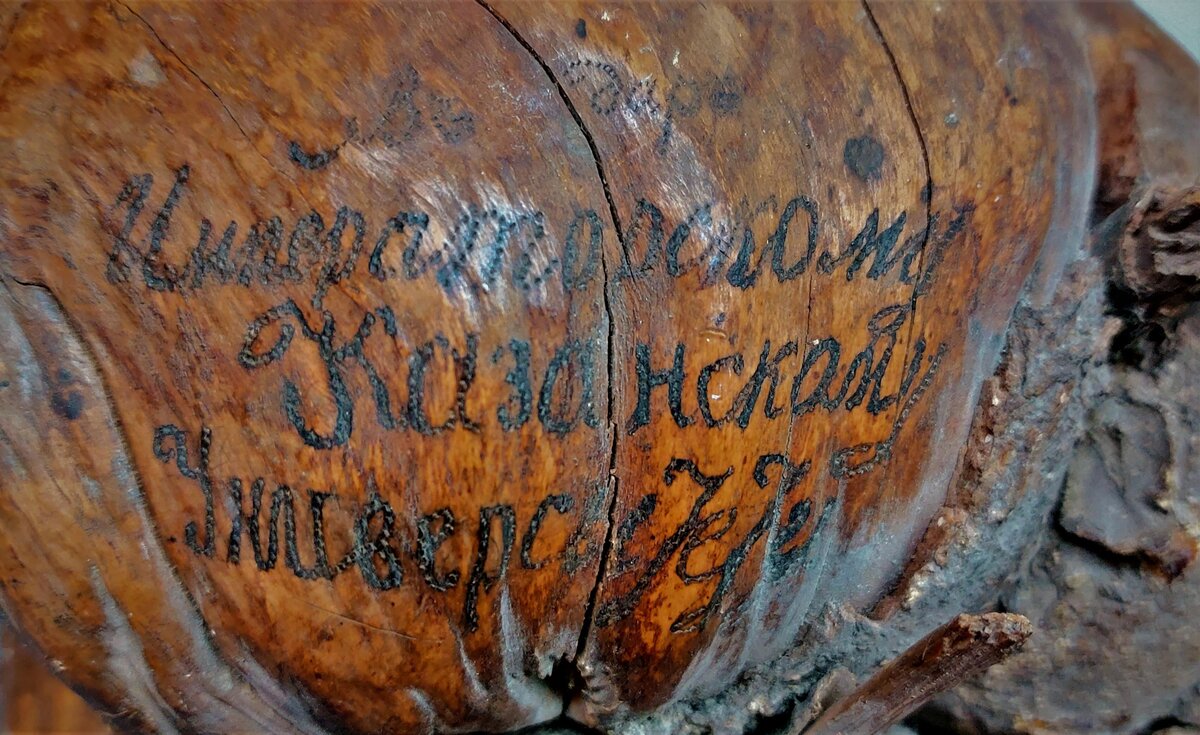 Въ даръ
Императорскому
Казанскому
Университету